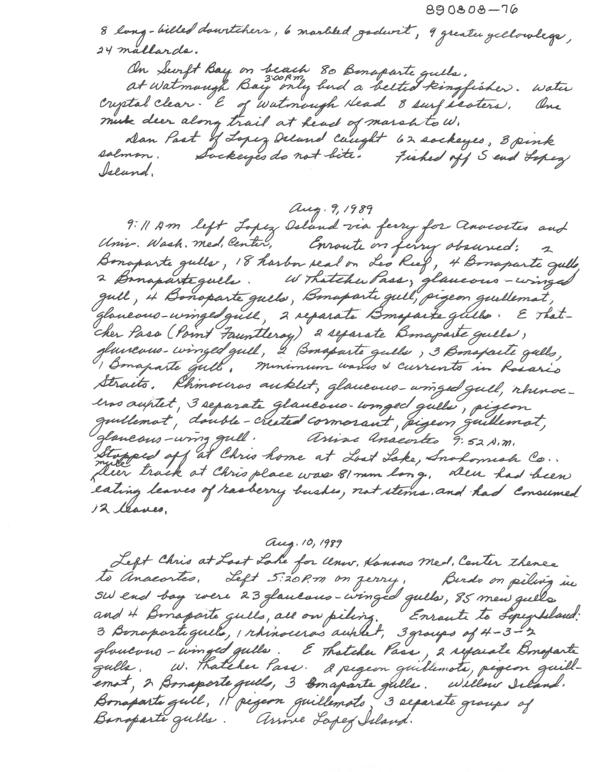 890808-76
8 long-billed dowitchers, 6 marbled godwit, 9 greater yellowlegs,
24 mallards.
On Swift Bay on beach 80 Bonaparte gulls.
3:00 P.M.
at Watmough Bay only bird a belted kingfisher. Water
crystal clear. E of Watmough Head 8 surf scoters. One
mule deer along trail at head of marsh to W.
Dan Post of Lopez Island caught 62 sockeyes, 3 pink
salmon. Sockeyes do not bite. Fished off S end Lopez
Island.
Aug. 9, 1989
9:11 AM left Lopez Island via ferry for Anacortes and
Univ. Wash. Med. Center. Enroute on ferry observed: 2
Bonaparte gulls, 18 harbor seal on Leo Reef, 4 Bonaparte gulls
2 Bonaparte gulls. W Thatcher Pass, glaucous-winged
gull, 4 Bonaparte gulls, Bonaparte gull, pigeon guillemot,
glaucous-winged gull, 2 separate Bonaparte gulls. E That-
cher Pass (Point Fauntleroy) 2 separate Bonaparte gulls,
glaucous-winged gull, 2 Bonaparte gulls, 3 Bonaparte gulls,
1 Bonaparte gull. Minimum waves & currents in Rosario
Straits. Rhinoceros auklet, glaucous-winged gull, rhinoc-
eros auklet, 3 separate glaucous-winged gulls, pigeon
guillemot, double-crested cormorant, pigeon guillemot,
glaucous-wing gull. Arrive Anacortes 9:52 A.M.
Stopped off at Chris home at Lost Lake, Snohomish Co..
mule
Deer track at Chris place was 81 mm long. Deer had been
eating leaves of rasberry bushes, not stems. and had consumed
12 leaves.
Aug. 10, 1989
Left Chris at Lost Lake for Univ. Kansas Med. Center thence
to Anacortes. Left 5:20 P.M on ferry. Birds on piling in
SW end bay were 23 glaucous-winged gulls, 85 mew gulls
and 4 Bonaparte gulls, all on piling. Enroute to Lopez Island:
3 Bonaparte gulls, 1 rhinoceros auklet, 3 groups of 4-3-2
glaucous-winged gulls. E Thatcher Pass, 2 separate Bonaparte
gulls. W. Thatcher Pass. 2 pigeon guillemots, pigeon guill-
emot, 2 Bonaparte gulls, 3 Bonaparte gulls. Willow Island.
Bonaparte gull, 11 pigeon guillemots, 3 separate groups of
Bonaparte gulls. Arrive Lopez Island.